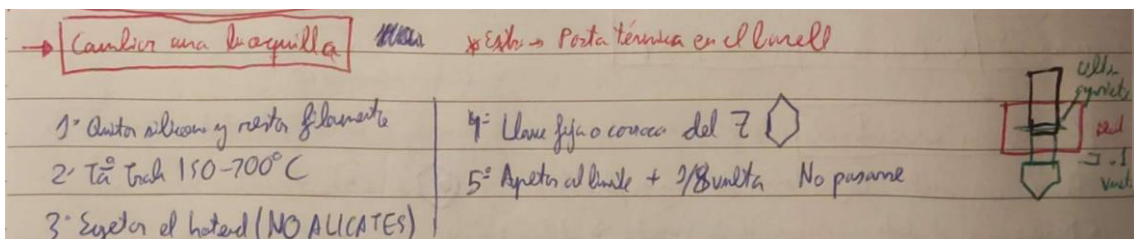 → Cambiar una boquilla
* Extra → Pasta térmica en el barell
1º Quitar silicona y restos filamento
2º Tª Trab 150-200°C
3º Sujetar el hotend (NO ALICATES)
4º Llave fija o carraca del 7
5º Apretar al límite + 1/8 vuelta No pasarse